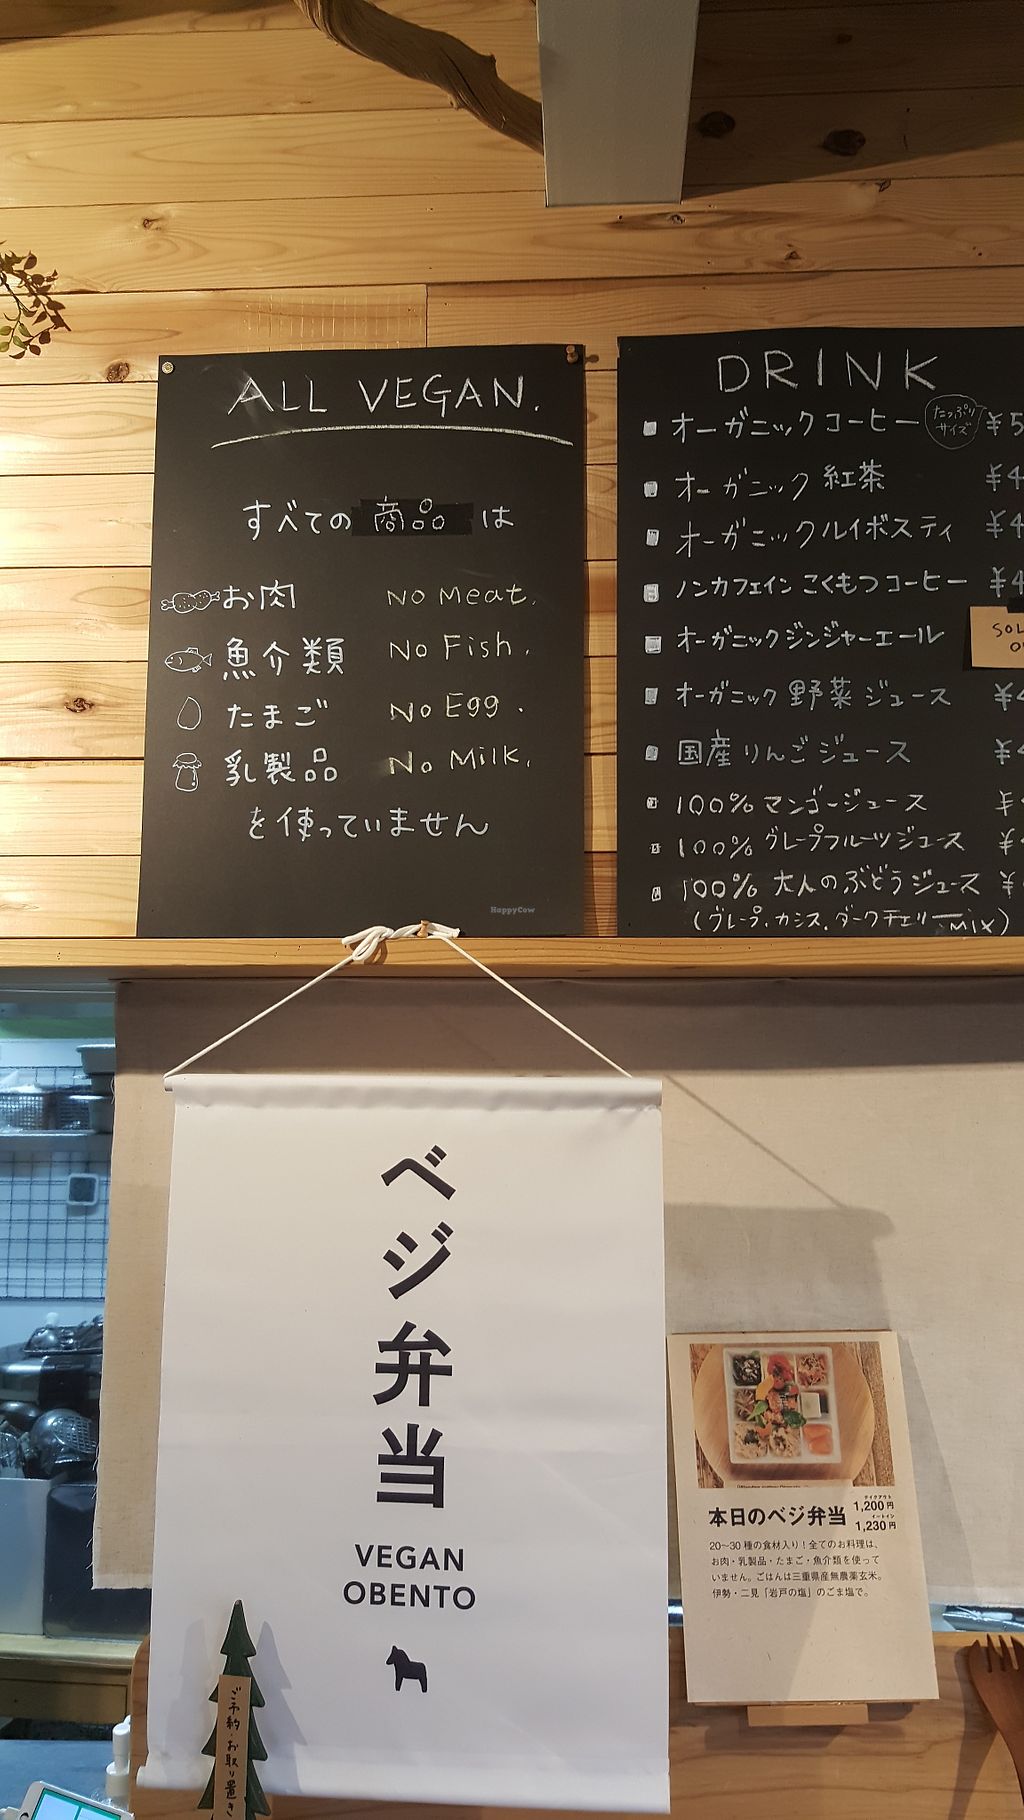 ALL VEGAN.
すべての商品は
お肉 No Meat.
魚介類 No Fish.
たまご No Egg.
乳製品 No Milk.
を使っていません
HappyCow
DRINK
オーガニックコーヒー たっぷりサイズ ¥5
オーガニック紅茶 ¥4
オーガニックルイボスティ ¥4
ノンカフェインこくもつコーヒー ¥4
オーガニックジンジャーエール
オーガニック野菜ジュース ¥4
国産りんごジュース ¥4
100%マンゴージュース ¥
100%グレープフルーツジュース ¥
100%大人のぶどうジュース ¥
(グレープ.カシス.ダークチェリーMIX)
ベジ弁当
VEGAN
OBENTO
本日のベジ弁当
テイクアウト
1,200円
イートイン
1,230円
20〜30種の食材入り！全てのお料理は、
お肉・乳製品・たまご・魚介類を使って
いません。ごはんは三重県産無農薬玄米。
伊勢・二見「岩戸の塩」のごま塩で。
ご予約・お取り置き